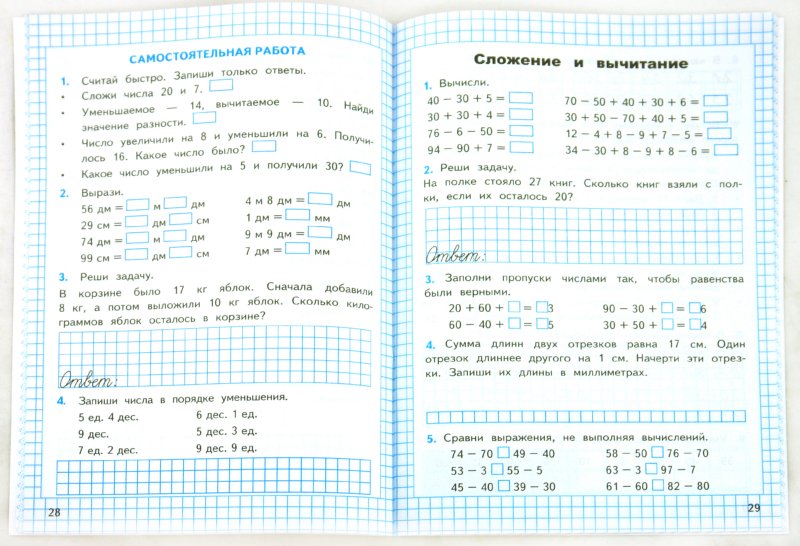 САМОСТОЯТЕЛЬНАЯ РАБОТА
1. Считай быстро. Запиши только ответы.
• Сложи числа 20 и 7.
• Уменьшаемое — 14, вычитаемое — 10. Найди
значение разности.
• Число увеличили на 8 и уменьшили на 6. Получи-
лось 16. Какое число было?
• Какое число уменьшили на 5 и получили 30?
2. Вырази.
56 дм = м дм 4 м 8 дм = дм
29 см = дм см 1 дм = мм
74 дм = м дм 9 м 9 дм = дм
99 см = дм см 7 дм = мм
3. Реши задачу.
В корзине было 17 кг яблок. Сначала добавили
8 кг, а потом выложили 10 кг яблок. Сколько кило-
граммов яблок осталось в корзине?
Ответ:
4. Запиши числа в порядке уменьшения.
5 ед. 4 дес. 6 дес. 1 ед.
9 дес. 5 дес. 3 ед.
7 ед. 2 дес. 9 дес. 9 ед.
28
Сложение и вычитание
1. Вычисли.
40 − 30 + 5 = 70 − 50 + 40 + 30 + 6 =
30 + 30 + 4 = 30 + 50 − 70 + 40 + 5 =
76 − 6 − 50 = 12 − 4 + 8 − 9 + 7 − 5 =
94 − 90 + 7 = 34 − 30 + 8 − 9 + 8 − 6 =
2. Реши задачу.
На полке стояло 27 книг. Сколько книг взяли с пол-
ки, если их осталось 20?
Ответ:
3. Заполни пропуски числами так, чтобы равенства
были верными.
20 + 60 + = 3 90 − 30 + = 6
60 − 40 + = 5 30 + 50 + = 4
4. Сумма длинн двух отрезков равна 17 см. Один
отрезок длиннее другого на 1 см. Начерти эти отрез-
ки. Запиши их длины в миллиметрах.
5. Сравни выражения, не выполняя вычислений.
74 − 70 49 − 40 58 − 50 76 − 70
53 − 3 55 − 5 63 − 3 97 − 7
45 − 40 39 − 30 61 − 60 82 − 80
29